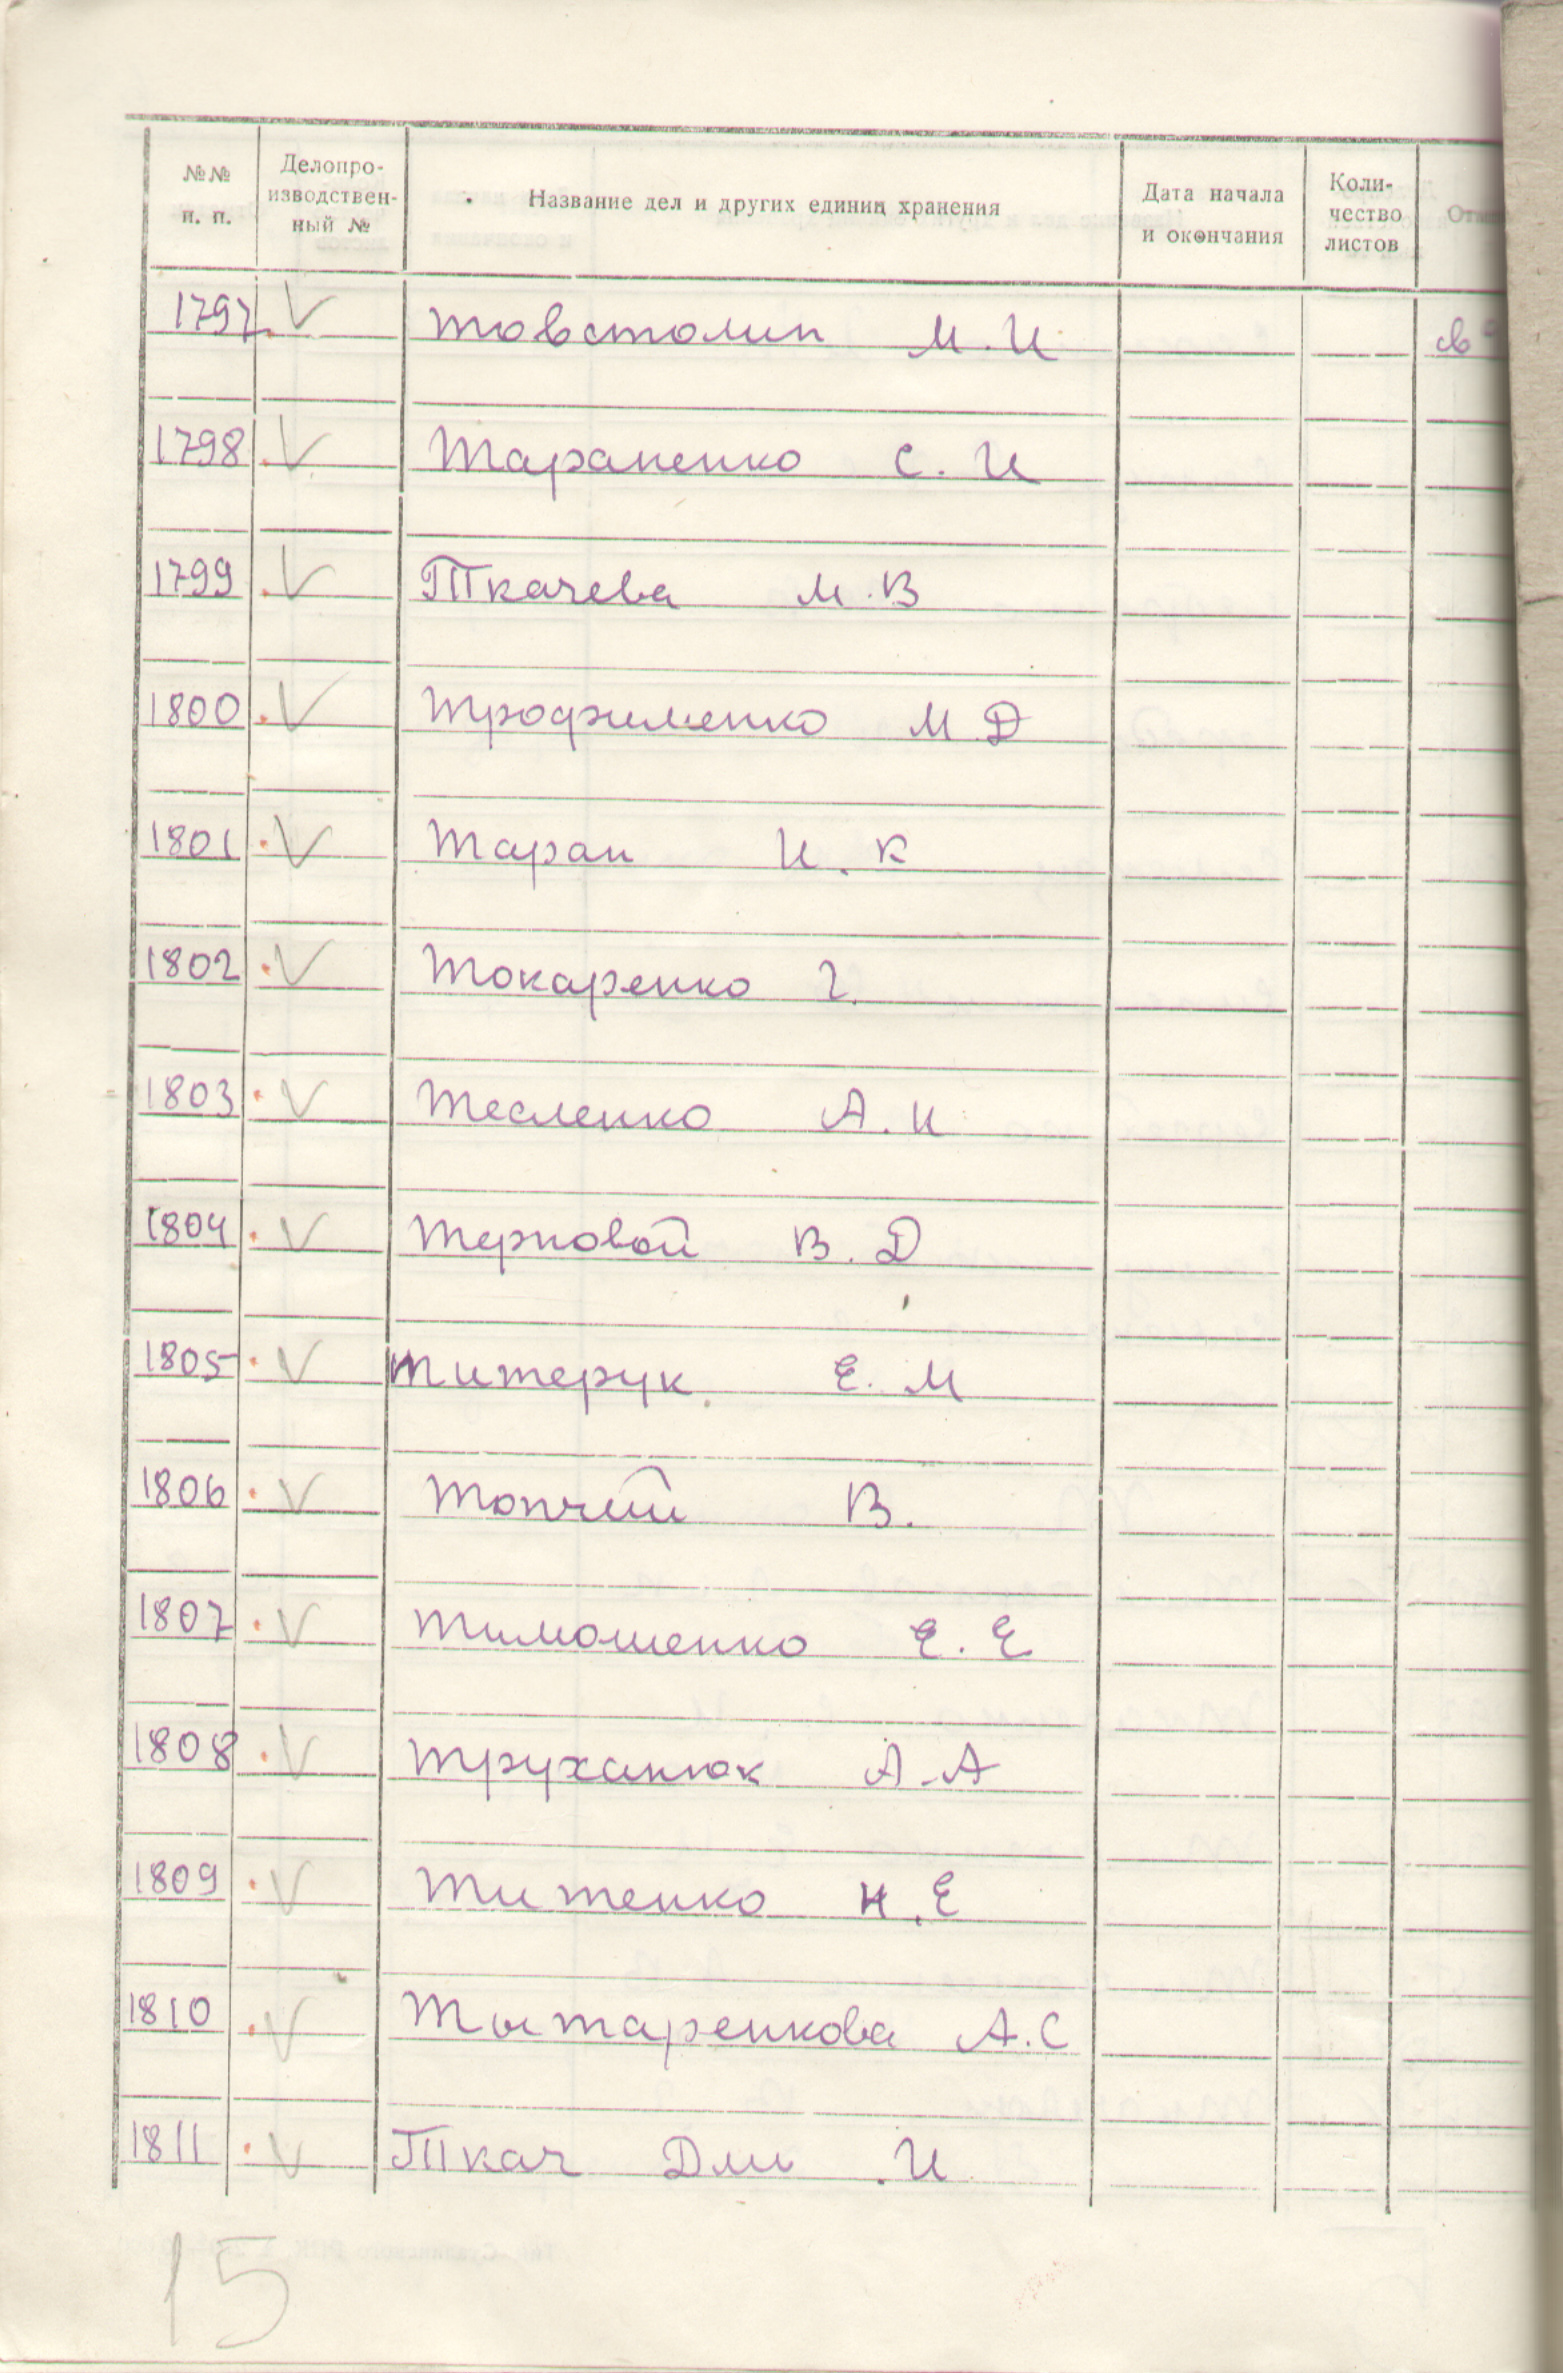 №№ п. п. Делопро-изводствен-ный № Название дел и других единиц хранения Дата начала и окончания Коли-чество листов
1797 V Товстолип М. И
1798 V Тараненко С. И
1799 V Ткачева М. В
1800 V Трофименко М Д
1801 V Таран И. К
1802 V Токаренко Г.
1803 V Тесленко А. И
1804 V Терновой В. Д
1805 V Титерук Е. М
1806 V Топчий В.
1807 V Тимошенко Е. Е
1808 V Труханюк А. А
1809 V Титенко Н. Е
1810 V Тытаренкова А. С
1811 V Ткач Дми . И
15